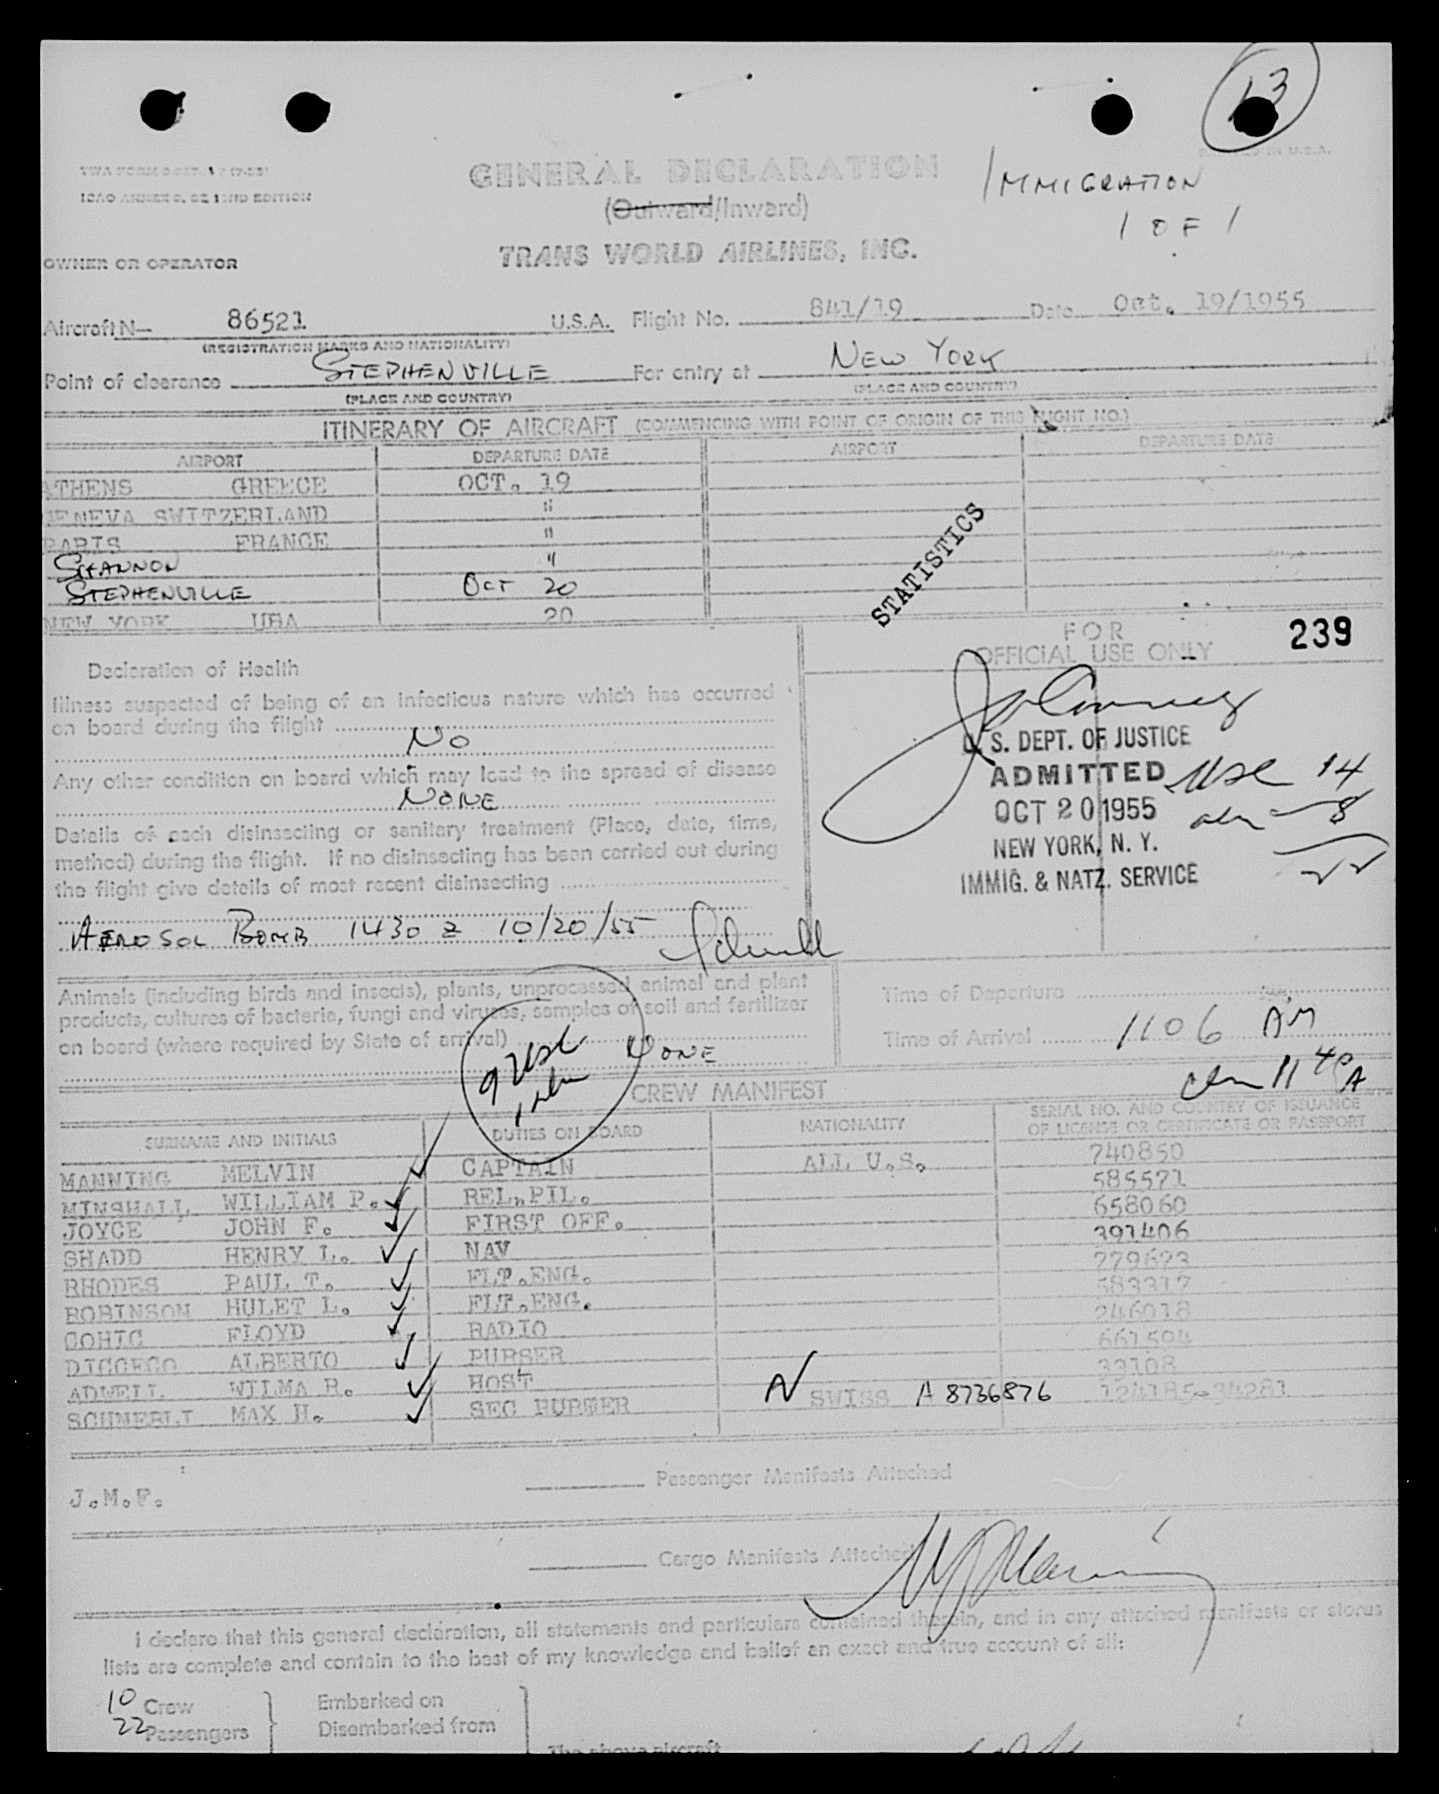 13
TWA FORM
ICAO ANNEX 9, 2ND EDITION
GENERAL DECLARATION
(Outward/Inward)
TRANS WORLD AIRLINES, INC.
IMMIGRATION
1 OF 1
OWNER OR OPERATOR
Aircraft N— 86521 U.S.A. Flight No. 841/19 Date Oct. 19/1955
(REGISTRATION MARKS AND NATIONALITY)
Point of clearance STEPHENVILLE For entry at NEW YORK
(PLACE AND COUNTRY) (PLACE AND COUNTRY)
ITINERARY OF AIRCRAFT (COMMENCING WITH POINT OF ORIGIN OF THIS FLIGHT NO.)
AIRPORT DEPARTURE DATE AIRPORT DEPARTURE DATE
ATHENS GREECE OCT. 19
GENEVA SWITZERLAND "
PARIS FRANCE "
SHANNON "
STEPHENVILLE OCT 20
NEW YORK USA 20
STATISTICS
FOR
OFFICIAL USE ONLY
239
Declaration of Health
Illness suspected of being of an infectious nature which has occurred
on board during the flight
NO
Any other condition on board which may lead to the spread of disease
NONE
Details of each disinsecting or sanitary treatment (Place, date, time,
method) during the flight. If no disinsecting has been carried out during
the flight give details of most recent disinsecting
AEROSOL BOMB 1430 Z 10/20/55
U. S. DEPT. OF JUSTICE
ADMITTED
OCT 20 1955
NEW YORK, N. Y.
IMMIG. & NATZ. SERVICE
USC 14
aln — 8
22
Animals (including birds and insects), plants, unprocessed animal and plant
products, cultures of bacteria, fungi and viruses, samples of soil and fertilizer
on board (where required by State of arrival)
NONE
9 USC
1 aln
Time of Departure
Time of Arrival 1106 AM
11 40 A
CREW MANIFEST
SURNAME AND INITIALS DUTIES ON BOARD NATIONALITY SERIAL NO. AND COUNTRY OF ISSUANCE
OF LICENSE OR CERTIFICATE OR PASSPORT
MANNING MELVIN CAPTAIN ALL U.S. 740850
MINSHALL WILLIAM P. REL.PIL. 585571
JOYCE JOHN F. FIRST OFF. 658060
SHADD HENRY L. NAV 391406
RHODES PAUL T. FLT.ENG. 779623
ROBINSON HULET L. FLT.ENG. 583317
GOHIC FLOYD RADIO 246018
ALBERTO PURSER 661504
ADWELL WILMA R. HOST 33108
SCHNEBLI MAX H. SEC PURSER N SWISS A 8736876 124185-34281
J.M.F.
Passenger Manifests Attached
Cargo Manifests Attached
I declare that this general declaration, all statements and particulars contained therein, and in any attached manifests or stores
lists are complete and contain to the best of my knowledge and belief an exact and true account of all:
10 Crew Embarked on
22 Passengers Disembarked from
The above aircraft